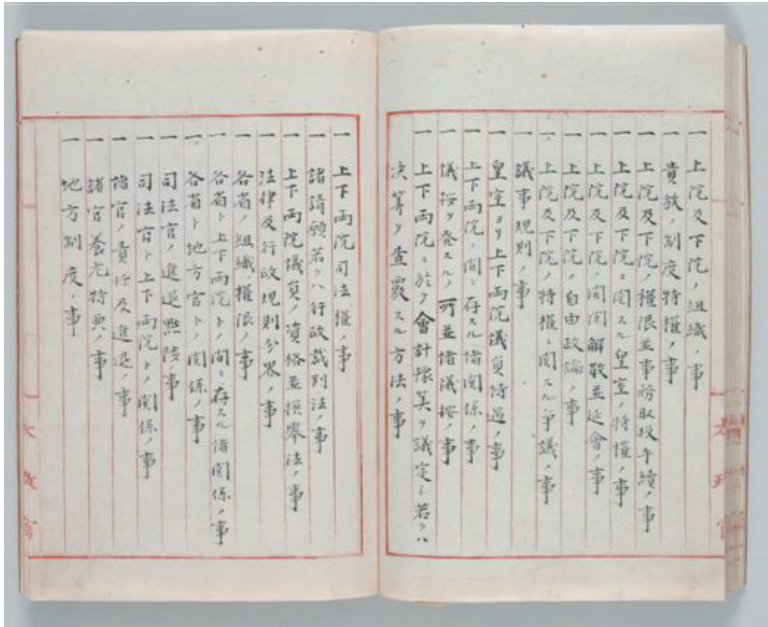 一 上院及下院ノ組織ノ事
一 貴族ノ制度特權ノ事
一 上院及下院ノ權限並事務取扱手續ノ事
一 上院及下院ニ関スル皇室ノ特權ノ事
一 上院及下院ノ開閉解散並延會ノ事
一 上院及下院ノ自由政論ノ事
一 上院及下院ノ特權ニ関スル争議ノ事
一 議事規則ノ事
一 皇室ヨリ上下両院議員待遇ノ事
一 上下両院ノ間ニ存スル諸関係ノ事
一 議按ヲ発スルノ可並諸議按ノ事
一 上下両院ニ於テ會計豫算ヲ議定シ若クハ
決算ヲ査覈スル方法ノ事
一 上下両院司法權ノ事
一 諸請願若クハ行政裁判法ノ事
一 上下両院議員ノ資格並撰擧法ノ事
一 法律及行政規則分界ノ事
一 各省ノ組織權限ノ事
一 各省ト上下両院トノ間ニ存スル諸関係ノ事
一 各省ト地方官トノ関係ノ事
一 司法官ノ進退黜陟ノ事
一 司法官ト上下両院トノ関係ノ事
一 諸官ノ責任及進退ノ事
一 諸官養老特典ノ事
一 地方制度ノ事
太政官
太政官